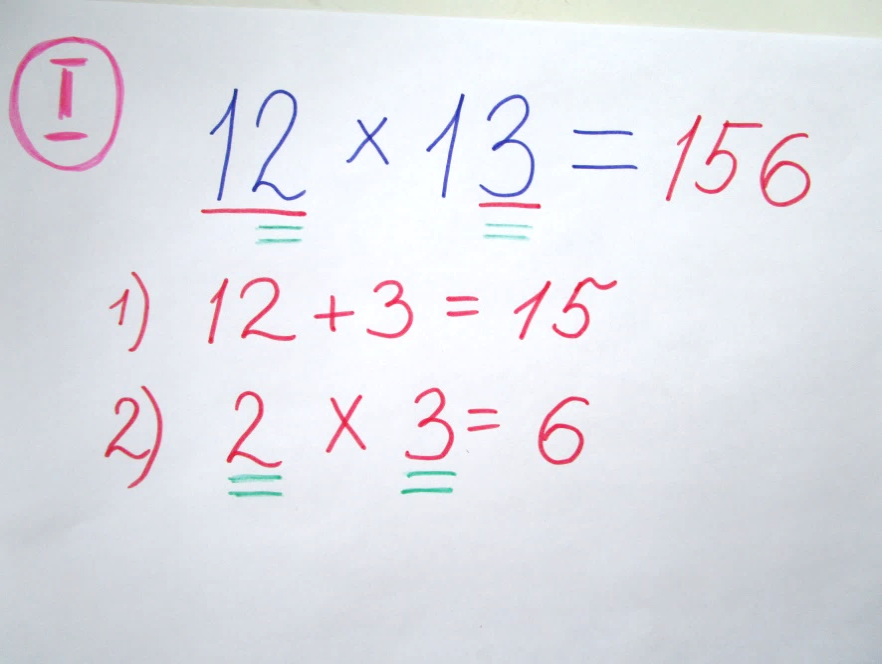 I
12 × 13 = 156
1) 12 + 3 = 15
2) 2 × 3 = 6